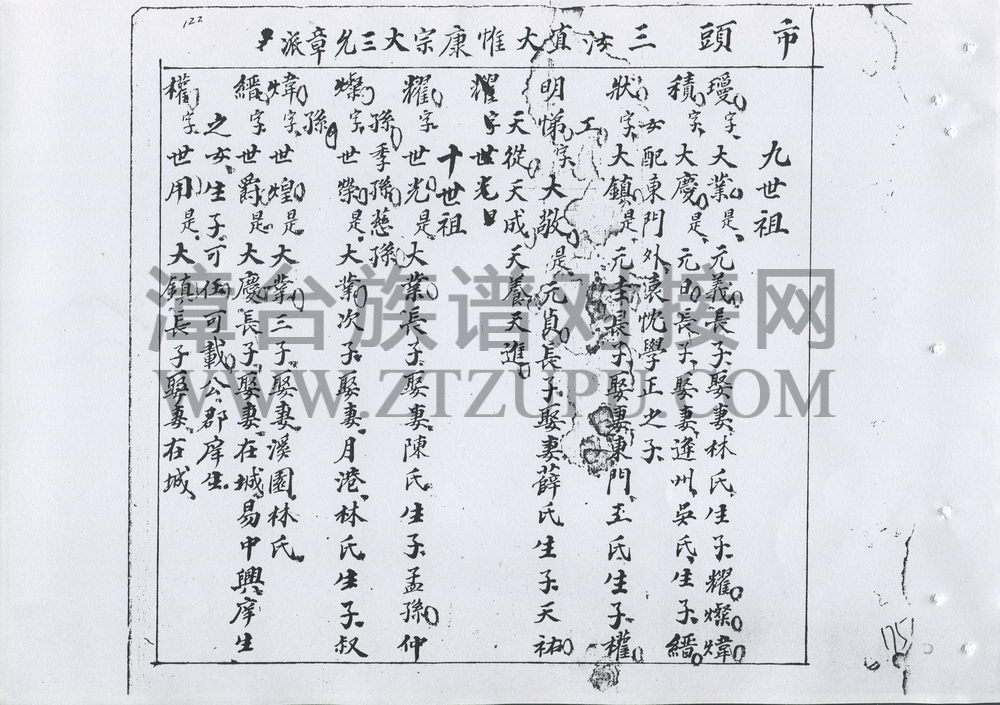 122
市頭三房植大惟康宗大三允章派
九世祖
璦字大業是元義長子娶妻林氏生子耀燦煒
積字大慶是元昌長子娶妻逢州吳氏生子縉
女配東門外袁忱學正之子
狀字大鎮是元圭長子娶妻東門王氏生子權
明悌字大敬是元貞長子娶妻薛氏生子天祐
天從天成天養天進
耀字世光曰
十世祖
耀字世光是大業長子娶妻陳氏生子孟孫仲
孫季孫慈孫
燦字世榮是大業次子娶妻月港林氏生子叔
孫
煒字世煌是大業三子娶妻溪園林氏
縉字世爵是大慶長子娶妻在城易中興庠生
之女生子可任可載公郡庠生
權字世用是大鎮長子娶妻在城
175
漳台族谱对接网
WWW.ZTZUPU.COM